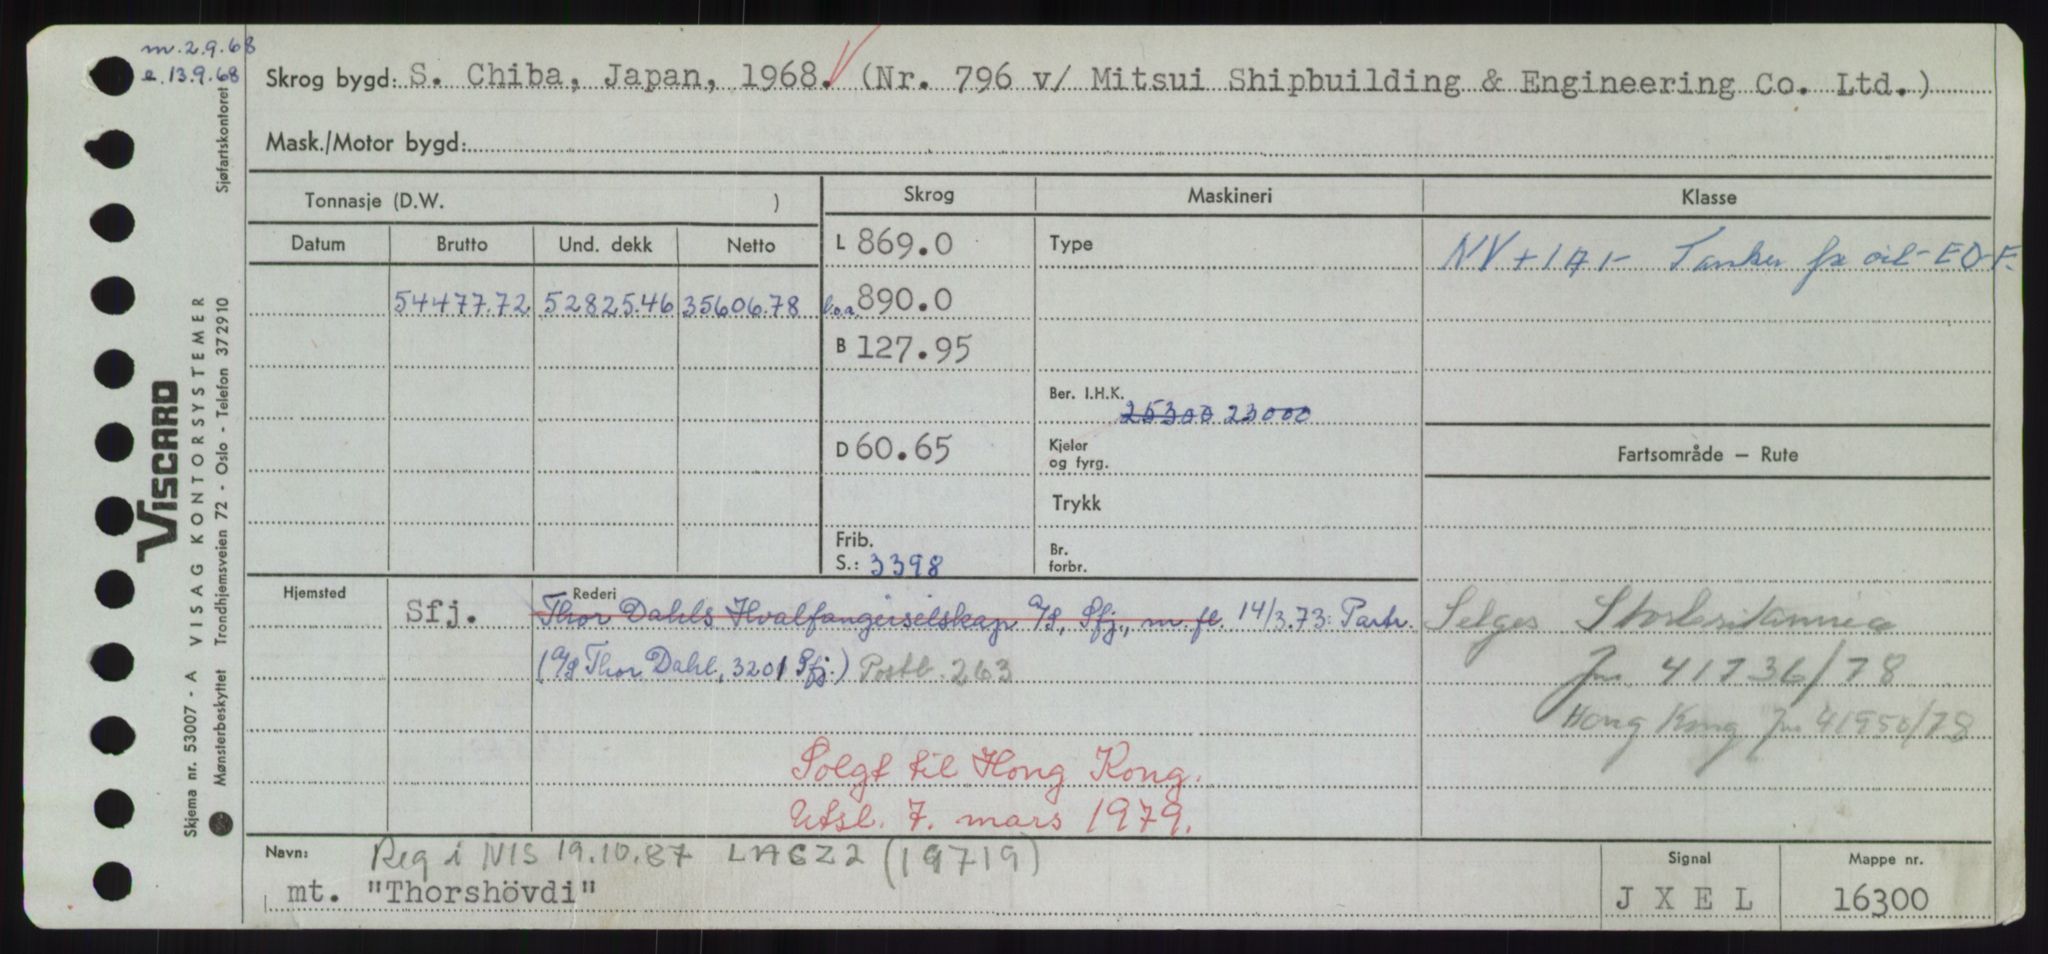 m. 2.9.68
e. 13.9.68
Skrog bygd: S. Chiba, Japan, 1968. (Nr. 796 v/ Mitsui Shipbuilding & Engineering Co. Ltd.)
Mask./Motor bygd:
Tonnasje (D.W. )
Skrog
Maskineri
Klasse
Datum
Brutto
Und. dekk
Netto
L 869.0
Type
NV + 1A1 - Tanker for oil - EO - F.
54477.72
52825.46
35606.78
l.o.a. 890.0
B 127.95
Ber. I.H.K.
25300 23000
D 60.65
Kjeler
og fyrg.
Fartsområde — Rute
Trykk
Frib.
S.: 3398
Br.
forbr.
Hjemsted
Rederi
Sfj.
Thor Dahls Hvalfangerselskap A/S, Sfj., m. fl. 14/3.73: Partr.
(A/S Thor Dahl, 3201 Sfj.) Postb. 263
Selges Storbritannia
Jnr 41736/78
Hong Kong Jnr 41950/78
Solgt til Hong Kong.
Utsl. 7. mars 1979.
Navn:
Reg i NIS 19.10.87 LACZ2 (19719)
mt. "Thorshövdi"
Signal
J X E L
Mappe nr.
16300
VISCARD
Skjema nr. 53007 - A VISAG KONTORSYSTEMER
Mønsterbeskyttet Trondhjemsveien 72 - Oslo - Telefon 372910 Sjøfartskontoret